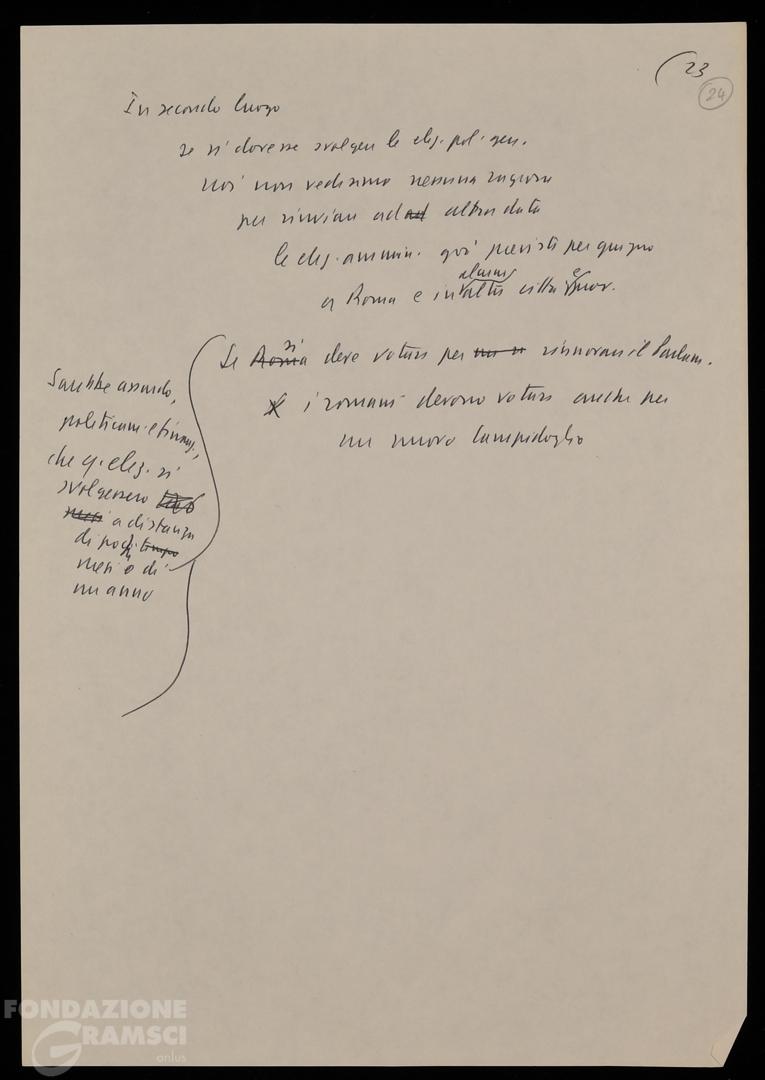 23
24
In secondo luogo
se si dovesse svolgere le elez. pol. gen.
noi non vediamo nessuna ragione
per rinviare ad ad altra data
le elez. ammin. già previste per giugno
alcune e
a Roma e in altre città
si
Se Roma deve votare per rinnovare il Parlam.
i romani devono votare anche per
un nuovo Campidoglio
Sarebbe assurdo,
politicam. e finanz.,
che q. elez. si
svolgessero
mesi a distanza
di pochi tempo
mesi o di
un anno
FONDAZIONE
GRAMSCI
onlus